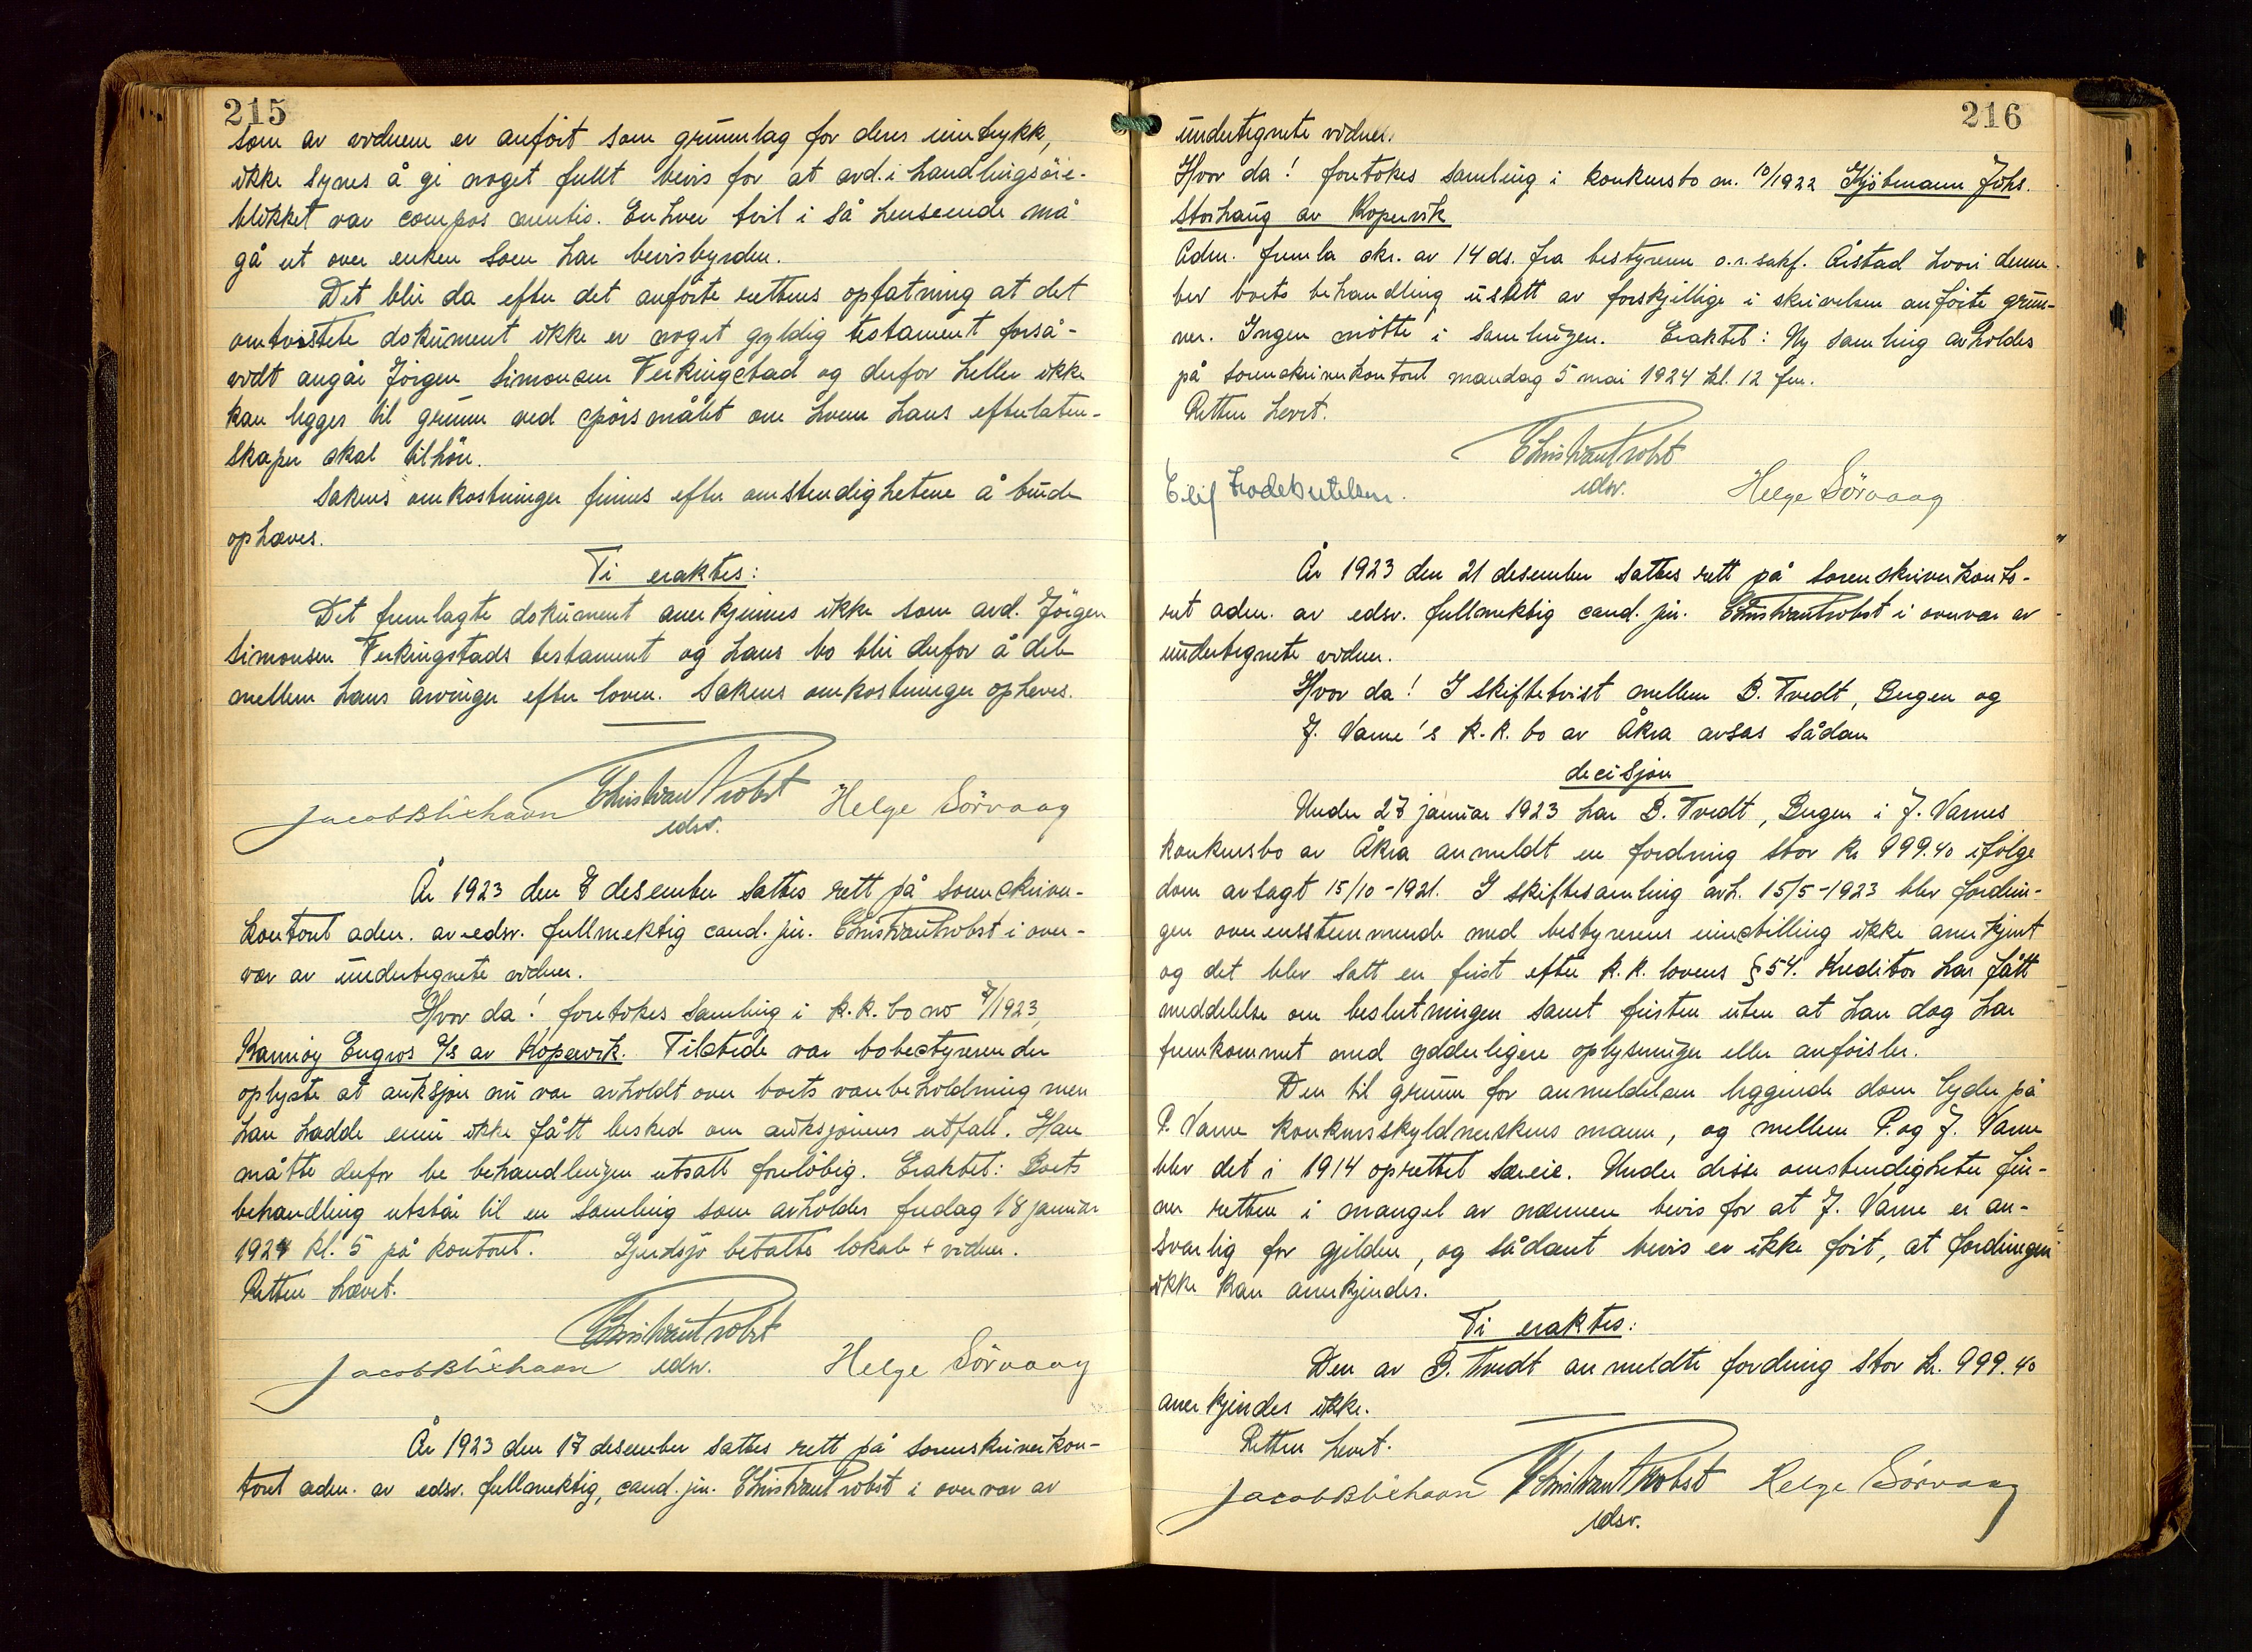 215
som av vidnene er anført som grunnlag for deres inntrykk,
ikke synes å gi noget fullt bevis for at avd. i handlingsøie-
blikket var compos mentis. Enhver tvil i så henseende må
gå ut over enken som har bevisbyrden.
Det blir da efter det anførte rettens opfatning at det
omtvistete dokument ikke er noget gyldig testament forså-
vidt angår Jørgen Simonsen Ferkingstad og derfor heller ikke
kan legges til grunn ved spørsmålet om hvem hans efterlaten-
skaper skal tilhøre.
Sakens omkostninger finnes efter omstendighetene å burde
ophæves.
Ti eraktes:
Det fremlagte dokument anerkjennes ikke som avd. Jørgen
Simonsen Ferkingstads testament og hans bo blir derfor å dele
mellem hans arvinger efter loven. Sakens omkostninger opheves.
Christian Probst Helge Sörvaag
edsv.
År 1923 den 8 desember sattes rett på sorenskriver-
kontoret adm. av edsv. fullmektig cand. jur. Christian Probst i over-
vær av undertegnete vidner.
Hvor da! foretokes samling i k.k. bo no 7/1923,
Karmøy Engros A/S av Kopervik. Tilstede var bobestyreren der
oplyste at auksjon nu var avholdt over boets varebeholdning men
han hadde ennu ikke fått besked om auksjonens utfall. Han
måtte derfor be behandlingen utsatt foreløbig. Eraktet: Boets
behandling utstår til en samling som avholdes fredag 18 januar
1924 kl. 5 på kontoret. Gjerdsjø betalte lokale + vidner.
Retten hævet.
Christian Probst
edsv. Helge Sörvaag
År 1923 den 17 desember sattes rett på sorenskriverkon-
toret adm. av edsv. fullmektig, cand. jur. Christian Probst i overvær av
216
undertegnete vidner.
Hvor da! foretokes samling i konkursbo nr. 10/1922 Kjøbmann Johs.
Storhaug av Kopervik
Adm. fremla skr. av 14 ds. fra bestyreren o.r.sakf. Aistad hvori denne
ber boets behandling utsatt av forskjellige i skrivelsen anførte grun-
ner. Ingen møtte i samlingen. Eraktet: Ny samling avholdes
på sorenskriverkontoret mandag 5 mai 1924 kl. 12 fm.
Retten hevet.
Christian Probst
edsv. Helge Sörvaag
Eilif
År 1923 den 21 desember sattes rett på sorenskriverkonto-
ret adm. av edsv. fullmektig cand. jur. Christian Probst i overvær av
undertegnete vidner.
Hvor da! I skiftetvist mellem B. Tvedt, Bergen og
J. Varne's k.k. bo av Åkra avsas sådan
decisjon
Under 27 januar 1923 har B. Tvedt, Bergen i J. Varnes
konkursbo av Åkra anmeldt en fordring stor kr 999.40 ifølge
dom avsagt 15/10-1921. I skiftesamling avh. 15/5-1923 blev fordrin-
gen overensstemmende med bestyrerens innstilling ikke anerkjent
og det blev satt en frist efter k.k. lovens § 54. Kreditor har fått
meddelelse om beslutningen samt fristen uten at han dog har
fremkommet med ydderligere oplysninger eller anførsler.
Den til grunn for anmeldelsen liggende dom lyder på
P. Varne konkursskyldnerskens mann, og mellem P. og J. Varne
blev det i 1914 oprettet særeie. Under disse omstendigheter fin-
ner retten i mangel av nærmere bevis for at J. Varne er an-
svarlig for gjelden, og sådant bevis er ikke ført, at fordringen
ikke kan anerkjendes.
Ti eraktes:
Den av B. Tvedt anmeldte fordring stor kr. 999.40
anerkjendes ikke.
Retten hevet.
Christian Probst Helge Sörvaag
edsv.